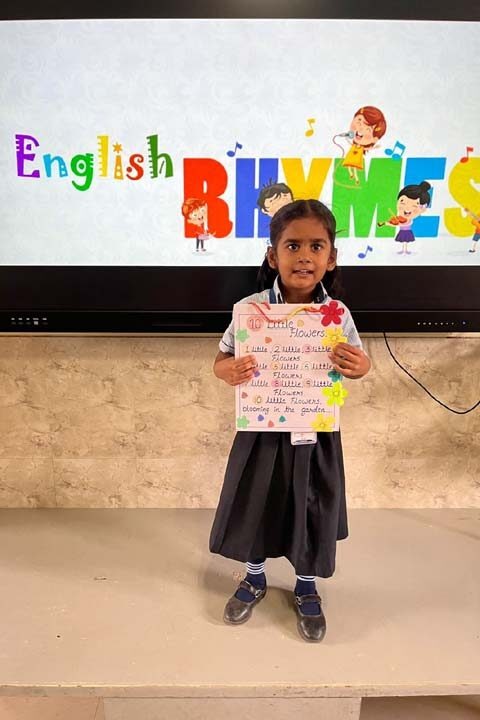 English RHYMES
10 Little
Flowers.
1 little, 2 little, 3 little
Flowers
little 5 little 6 little
Flowers
little 8 little, 9 little
Flowers
10 little Flowers,
blooming in the garden...